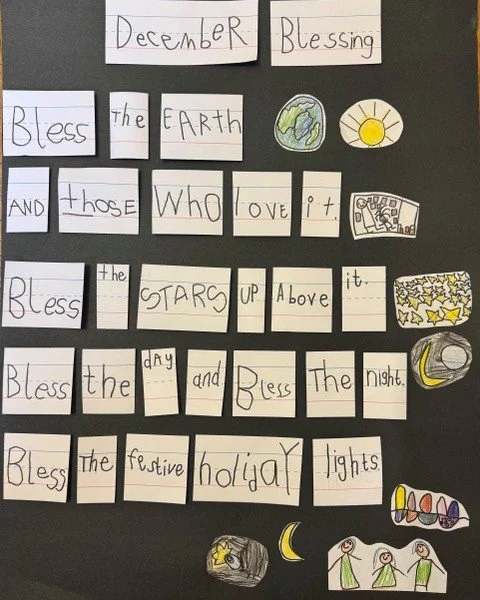 DecembeR Blessing
Bless The EARth
AND thosE WhO lovE it.
Bless the STARS UP Above it.
Bless the day and Bless The night.
Bless The festive holidaY lights.